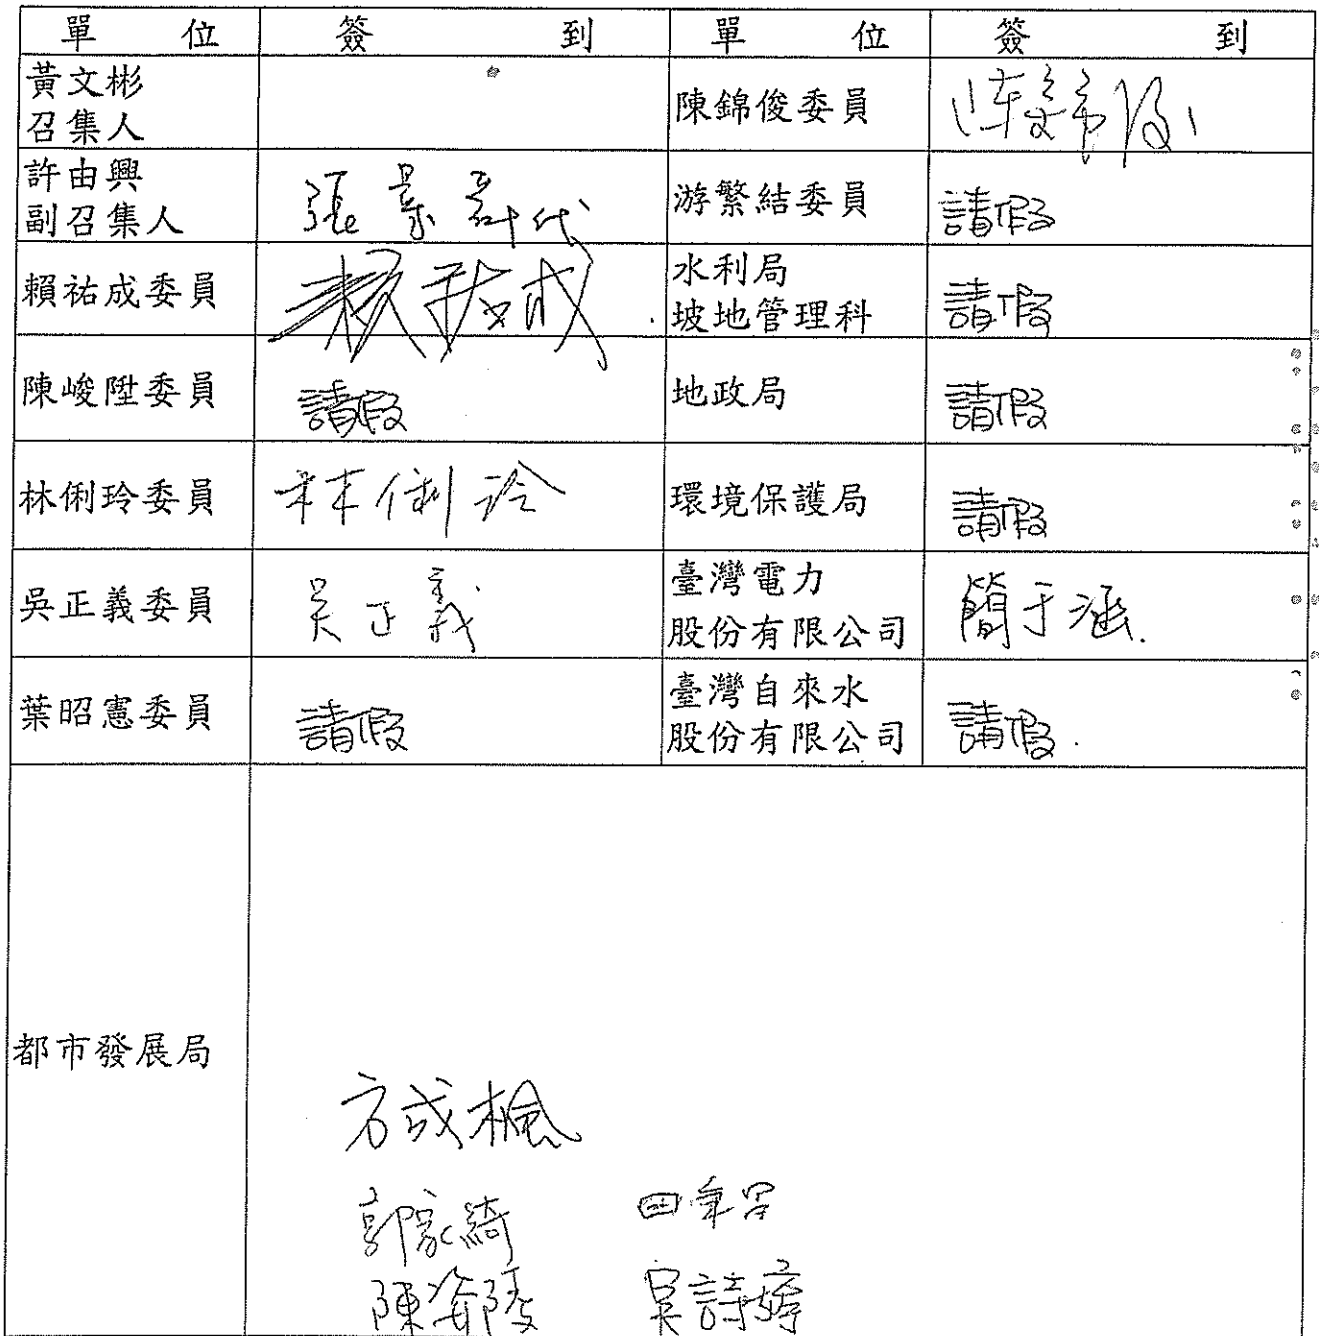 單位 簽到 單位 簽到
黃文彬
召集人
陳錦俊委員 陳錦俊
許由興
副召集人
張景 代
游繁結委員 請假
賴祐成委員 賴祐成
水利局
坡地管理科
請假
陳峻陞委員 請假
地政局 請假
林俐玲委員 林俐玲
環境保護局 請假
吳正義委員 吳正義
臺灣電力
股份有限公司
簡于涵
葉昭憲委員 請假
臺灣自來水
股份有限公司
請假
都市發展局
方成楓
郭家綺 田
陳 吳詩婷